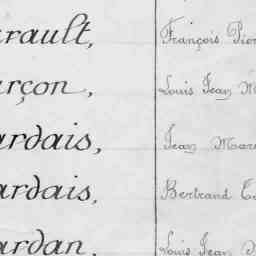 rault, François Pier
rçon, Louis Jean M
ardais, Jean Marc
ardais, Bertrand
ardan, Louis Jean